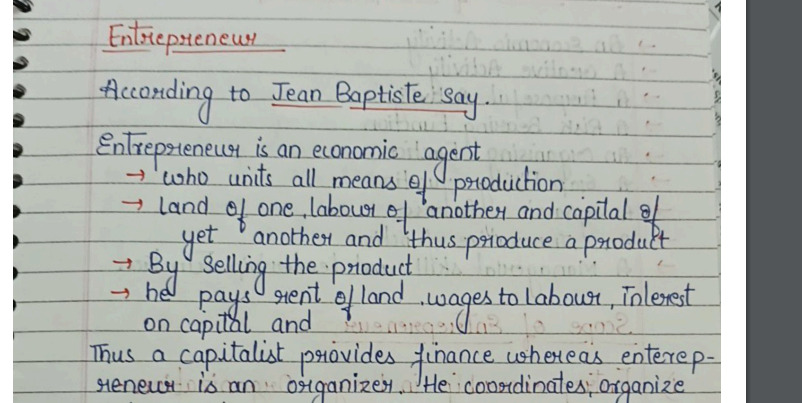 Entrepreneur
According to Jean Baptiste Say.
Entrepreneur is an economic agent
→ who units all means of production
→ land of one, labour of another and capital of
yet another and thus produce a product
→ By selling the product
→ he pays rent of land, wages to labour, Interest
on capital and
Thus a capitalist provides finance whereas enterep-
reneur is an organizer. He coordinates, organize